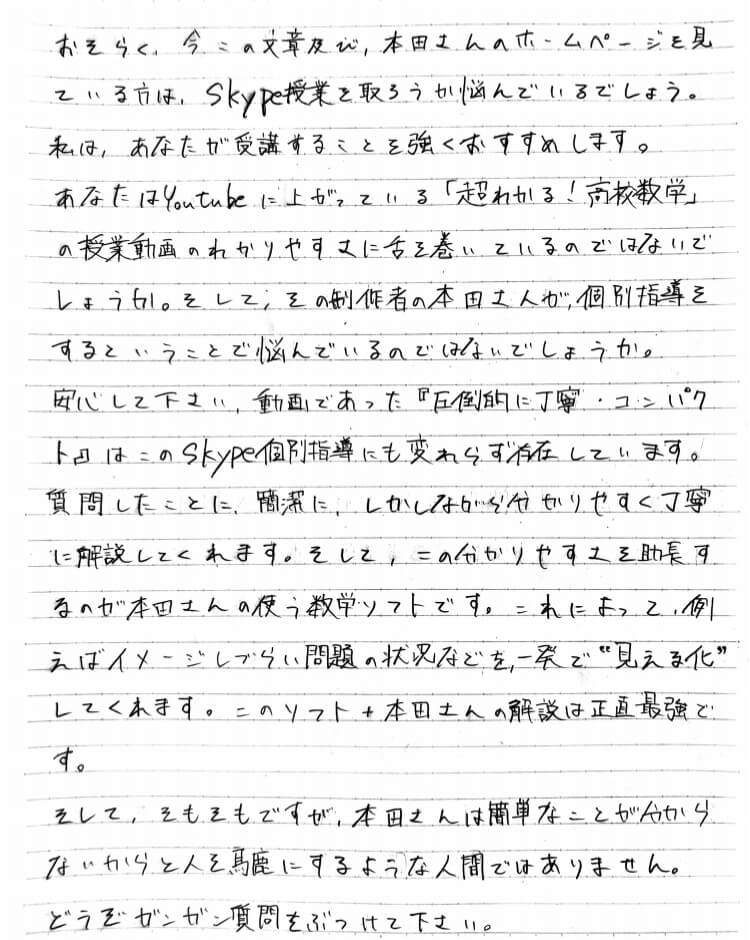 おそらく、今この文章及び、本田さんのホームページを見
ている方は、Skype授業を取ろうか悩んでいるでしょう。
私は、あなたが受講することを強くおすすめします。
あなたはYoutubeに上がっている「超わかる!高校数学」
の授業動画のわかりやすさに舌を巻いているのではないで
しょうか。そして、その制作者の本田さんが、個別指導を
するということで悩んでいるのではないでしょうか。
安心して下さい、動画であった『圧倒的に丁寧・コンパク
ト』はこのSkype個別指導にも変わらず存在しています。
質問したことに、簡潔に、しかしながら分かりやすく丁寧
に解説してくれます。そして、この分かりやすさを助長す
るのが本田さんの使う数学ソフトです。これによって、例
えばイメージしづらい問題の状況などを、一発で“見える化”
してくれます。このソフト+本田さんの解説は正直最強で
す。
そして、そもそもですが、本田さんは簡単なことが分から
ないからと人を馬鹿にするような人間ではありません。
どうぞガンガン質問をぶつけて下さい。